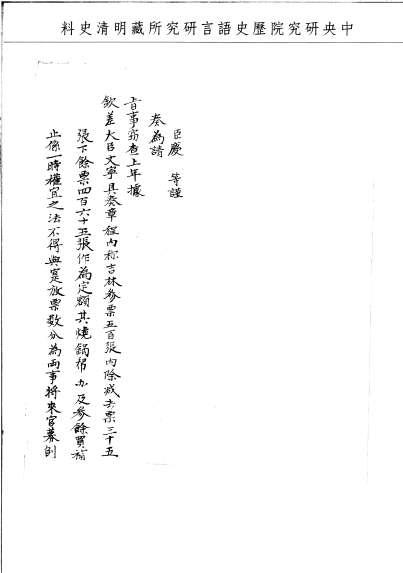 中央研究院歷史語言研究所藏明清史料
臣慶 等謹
奏為請
旨事竊查上年據
欽差大臣文寧具奏章程內称吉林參票五百張內除減去票三十五
張下餘票四百六十五張作為定額其燒鍋帮办及參餘買補
止係一時權宜之法不得與寔放票数分為兩事將來官募刨